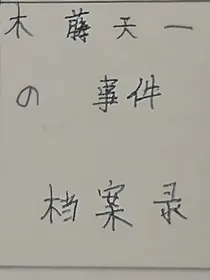 木藤天一
の 事件
档案录